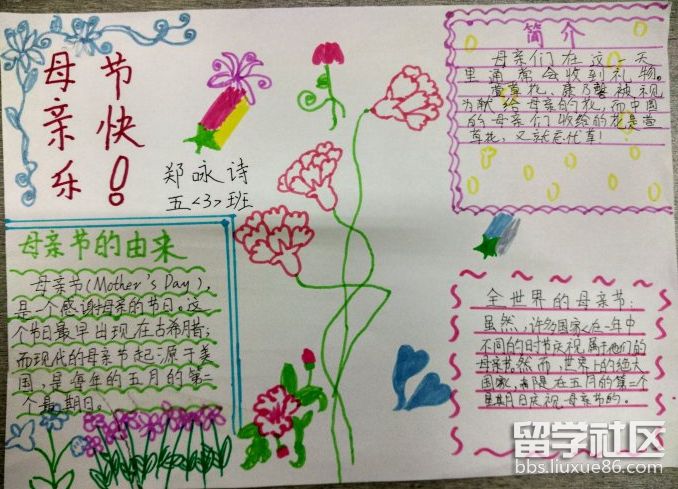 母亲节快乐!
郑咏诗
五<3>班
简介
母亲们在这一天
里通常会收到礼物。
萱草花、康乃馨被视
为献给母亲的花,而中国
的母亲们收给的花是萱
草花,又就忘忧草!
母亲节的由来
母亲节(Mother's Day),
是一个感谢母亲的节日。这
个节日最早出现在古希腊;
而现代的母亲节起源于美
国,是每年的五月的第二
个星期日。
全世界的母亲节:
虽然,许多国家在一年中
不同的时节庆祝属于他们的
母亲节。然而,世界上的绝大
国家,在五月的第二个
星期日庆祝母亲节的。
留学社区
bbs.liuxue86.com